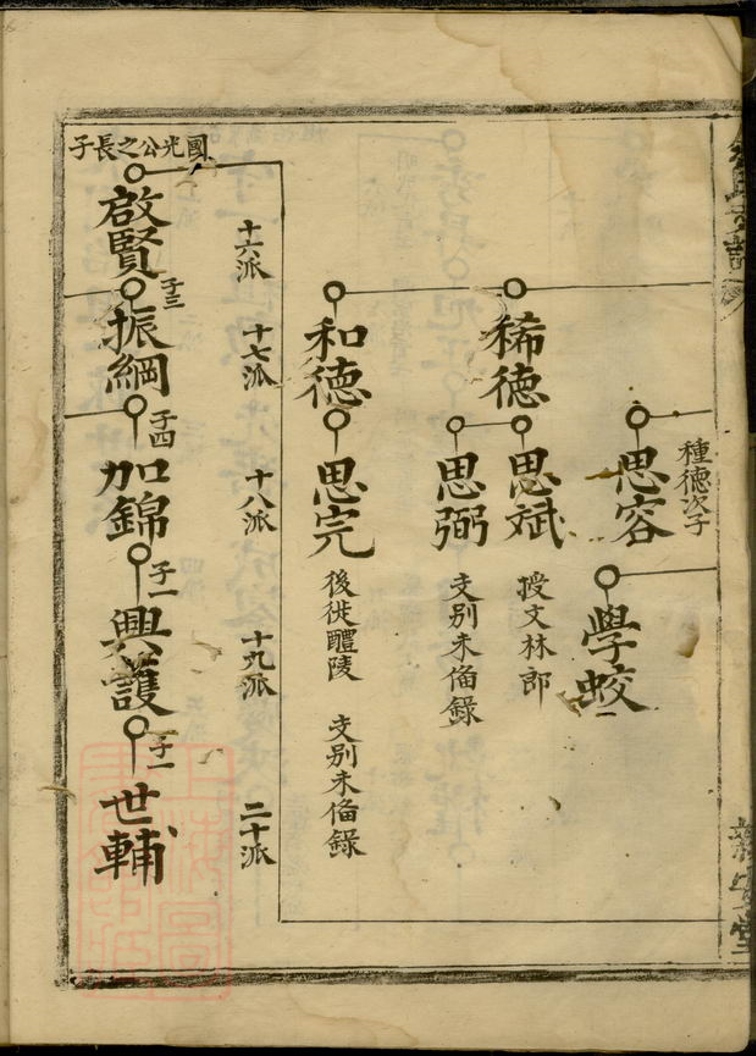 種德次子
思容
學蛟
稀德
思斌
授文林郎
思弼
支别未俻錄
和德
思完
後徙醴陵
支别未俻錄
十六派
十七派
十八派
十九派
二十派
國光公之長子
啟賢
子三
振綱
子四
加錦
子一
興護
子一
世輔